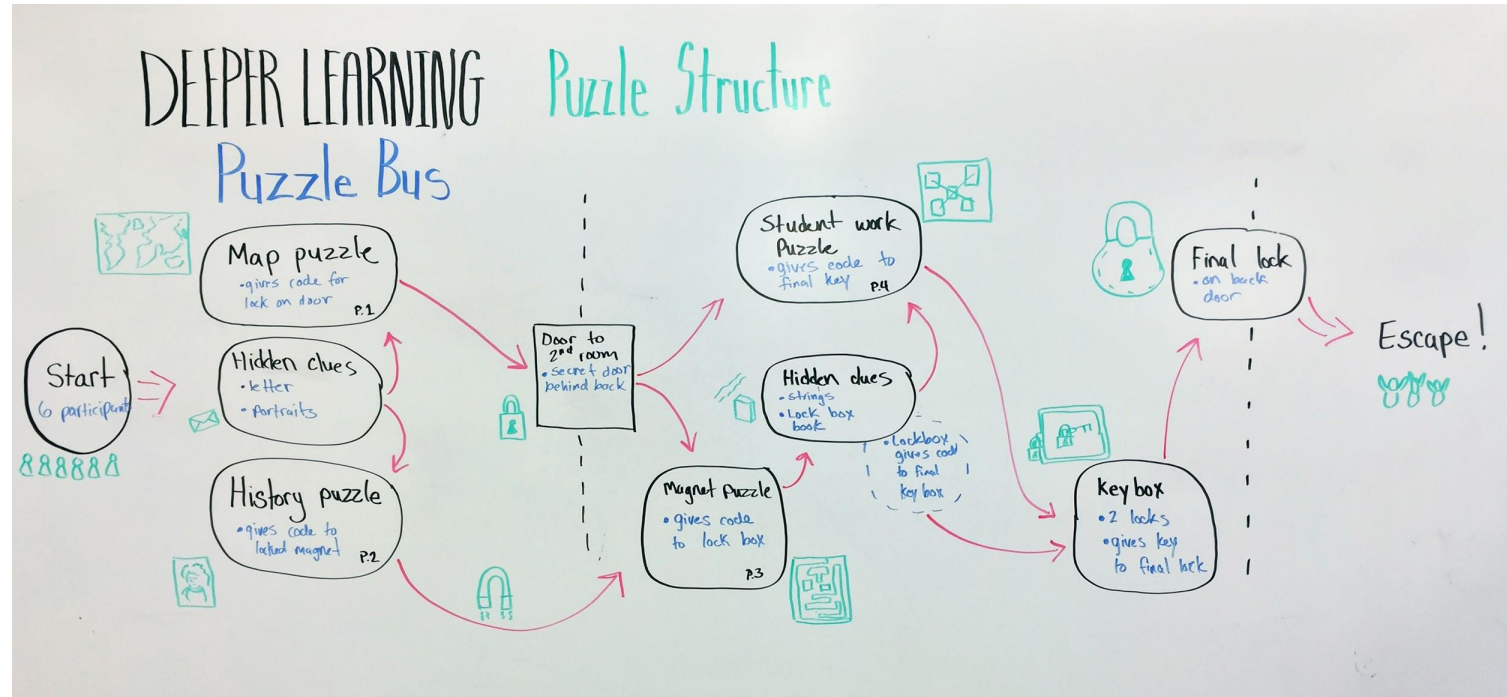 DEEPER LEARNING Puzzle Structure
Puzzle Bus
Start
6 participants
Map puzzle
• gives code for
lock on door
P.1
Hidden clues
• letter
• portraits
History puzzle
• gives code to
locked magnet
P.2
Door to
2nd room
• secret door
behind back
Student work
Puzzle
• gives code to
final key
P.4
Hidden clues
- strings
• Lock box
book
• Lockbox
gives code
to final
key box
Magnet Puzzle
• gives code
to lock box
P.3
Key box
• 2 locks
• gives key
to final lock
Final lock
• on back
door
Escape!